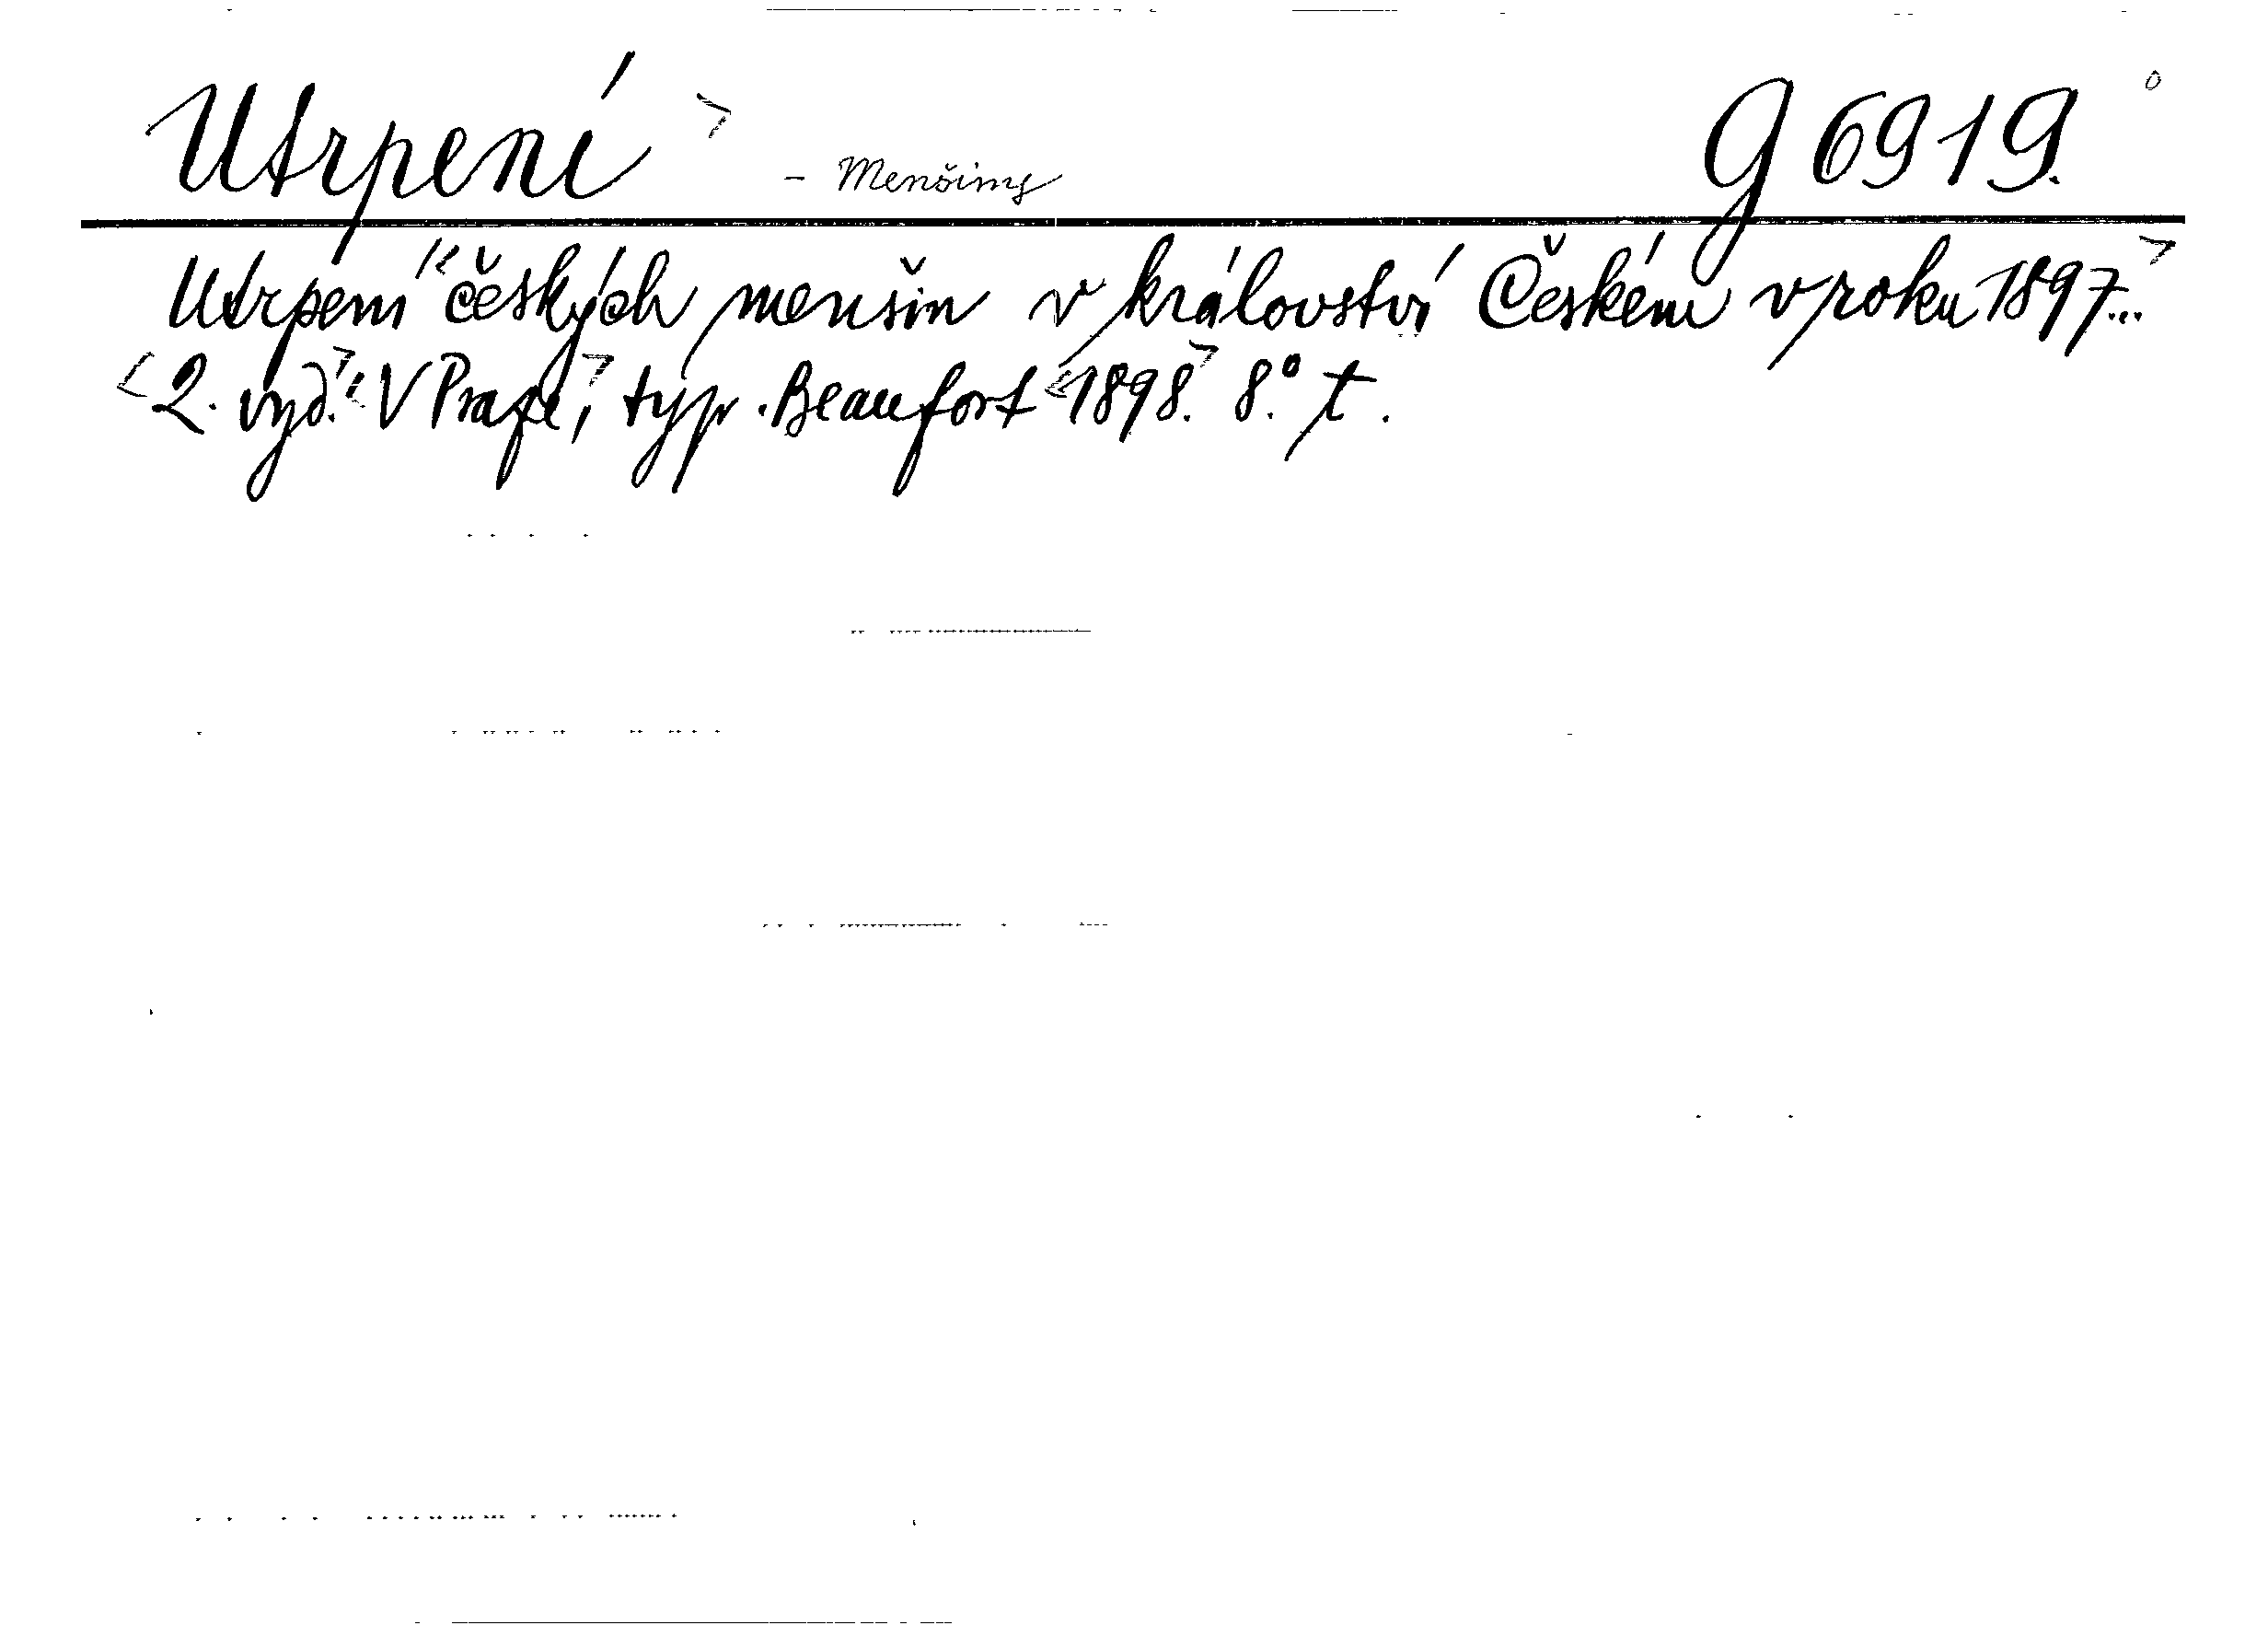 Utrpení > - Menšiny g 6919.
Utrpení « českých menšin v království Českém v roku 1897... >
< 2. vyd. > « V Praze, > typ. Beaufort « 1898. > 8.° t.